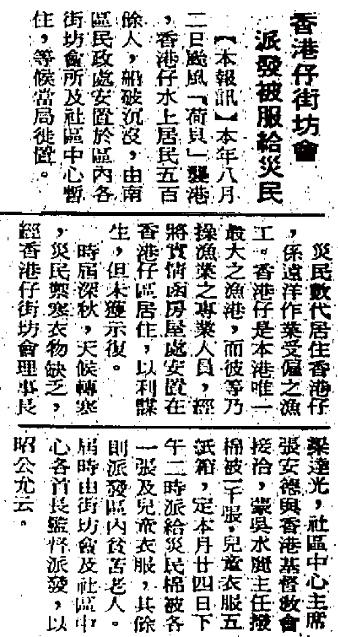 香港仔街坊會
派發被服給災民
【本報訊】本年八月
二日颱風「荷貝」襲港
，香港仔水上居民五百
餘人，船破沉沒，由南
區民政處安置於區內各
街坊會所及社區中心暫
住，等候當局徙置。
災民數代居住香港仔
，係遠洋作業受僱之漁
工。香港仔是本港唯一
最大之漁港，而彼等乃
操漁業之專業人員，經
將實情函房屋處安置在
香港仔區居住，以利謀
生，但未獲示復。
時屆深秋，天候轉寒
，災民禦寒衣物缺乏，
經香港仔街坊會理事長
梁達光，社區中心主席
張安德與香港基督教會
接洽，蒙吳水麗主任撥
棉被一千張，兒童衣服五
紙箱，定本月廿四日下
午二時派給災民棉被各
一張及兒童衣服，其餘
則派發區內貧苦老人。
屆時由街坊會及社區中
心各首長監督派發，以
昭公允云。